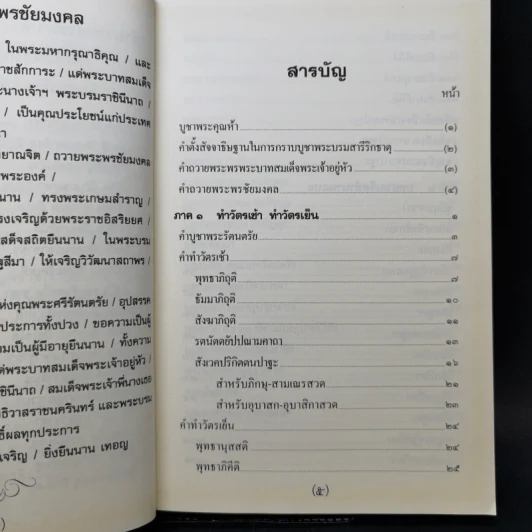 พรชัยมงคล
ในพระมหากรุณาธิคุณ / และ
ราชสักการะ / แด่พระบาทสมเด็จ
นางเจ้าฯ พระบรมราชินีนาถ
/ เป็นคุณประโยชน์แก่ประเทศ
ถวายพระพรชัยมงคล
พระองค์ /
นาน / ทรงพระเกษมสำราญ /
รงเจริญด้วยพระราชอิสริยยศ
สด็จสถิตยืนนาน / ในพระบรม
ฐสีมา / ให้เจริญวิวัฒนาสถาพร /
ห่งคุณพระศรีรัตนตรัย / อุปสรรค
ประการทั้งปวง / ขอความเป็นผู้
มเป็นผู้มีอายุยืนนาน / ทั้งความ
ด่พระบาทสมเด็จพระเจ้าอยู่หัว /
ชินีนาถ / สมเด็จพระเจ้าพี่นางเธอ
ธิวาสราชนครินทร์ และพระบรม
ธิ์ผลทุกประการ
เจริญ / ยิ่งยืนนาน เทอญ
สารบัญ
หน้า
บูชาพระคุณห้า (๑)
คำตั้งสัจจาธิษฐานในการกราบบูชาพระบรมสารีริกธาตุ (๒)
คำถวายพระพรพระบาทสมเด็จพระเจ้าอยู่หัว (๓)
คำถวายพระพรชัยมงคล (๔)
ภาค ๑ ทำวัตรเช้า ทำวัตรเย็น ๑
คำบูชาพระรัตนตรัย ๓
คำทำวัตรเช้า ๗
พุทธาภิถุติ ๗
ธัมมาภิถุติ ๑๐
สังฆาภิถุติ ๑๑
รตนัตตยัปปณามคาถา ๑๓
สังเวคปริกิตตนปาฐะ ๑๖
สำหรับภิกษุ-สามเณรสวด ๒๑
สำหรับอุบาสก-อุบาสิกาสวด ๒๓
คำทำวัตรเย็น ๒๔
พุทธานุสสติ ๒๔
พุทธาภิคีติ ๒๕
(๕)